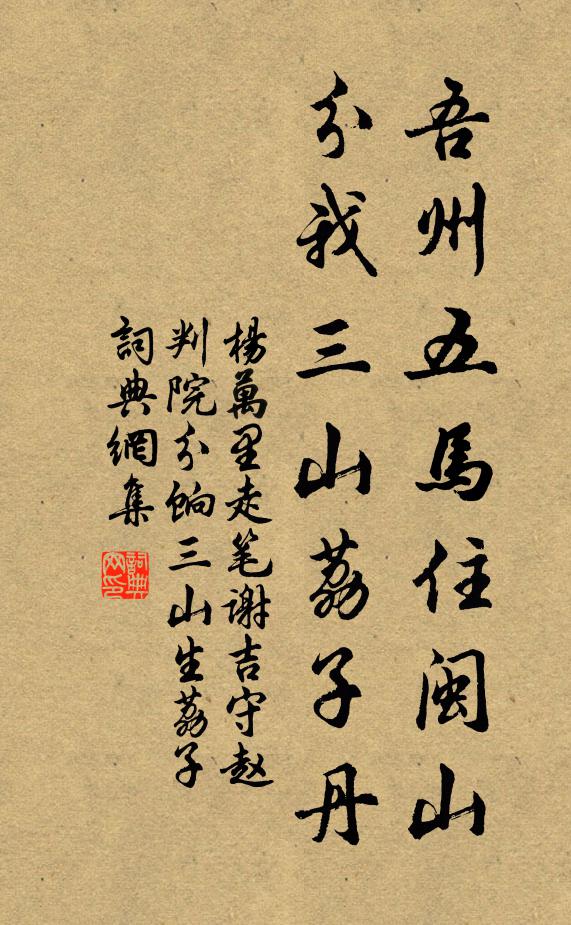 吾州五馬住閩山
分我三山荔子丹
楊萬里走笔謝吉守趙
判院分餉三山生荔子
詞典網集
詞典网印